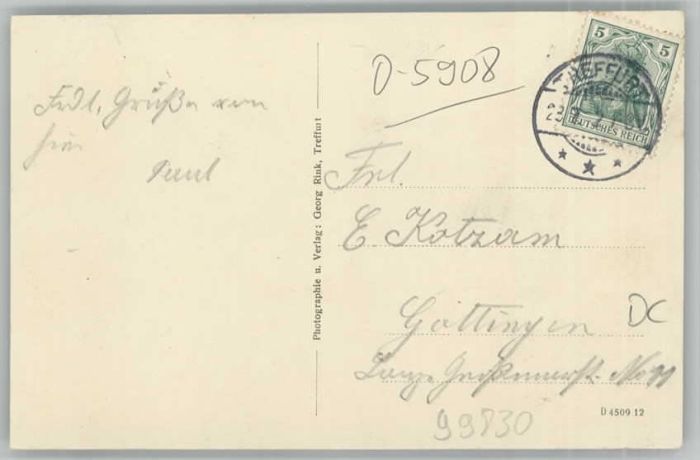 Frdl. Grüße von
hier
Paul
Photographie u. Verlag: Georg Rink, Treffurt
O-5908
5 5
DEUTSCHES REICH
TREFFURT
Frl.
E. Kotzam
Göttingen
DC
99830
D 4509 12